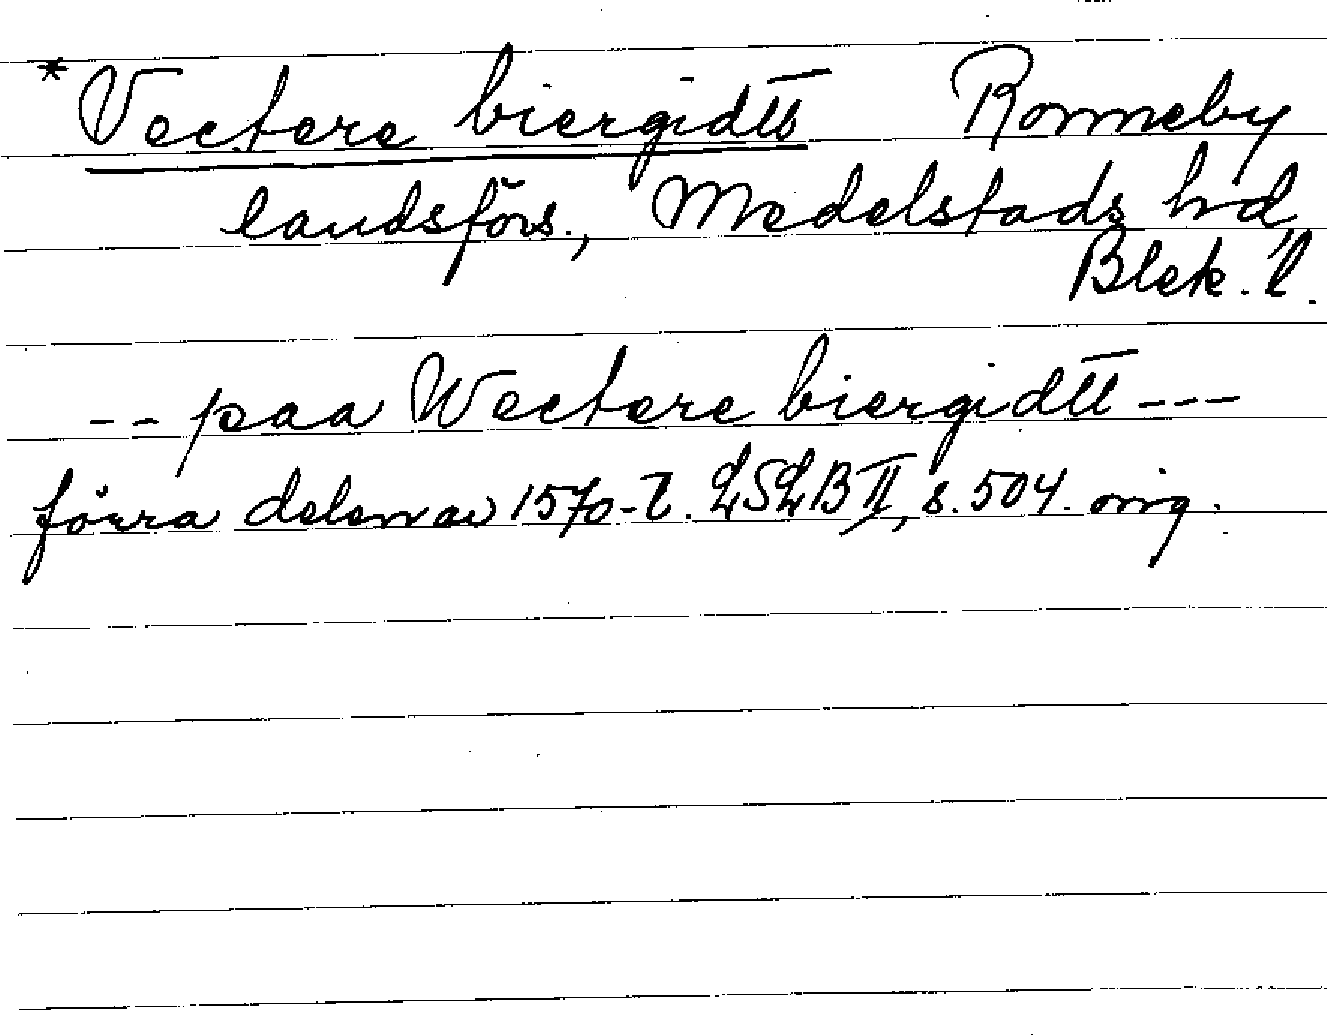 *Vectere biergidtt Ronneby
landsförs., Medelstads hd,
Blek. l.
-- paa Wectere biergidtt ---
förra delen av 1570-t. LSLB II, s. 504. orig.